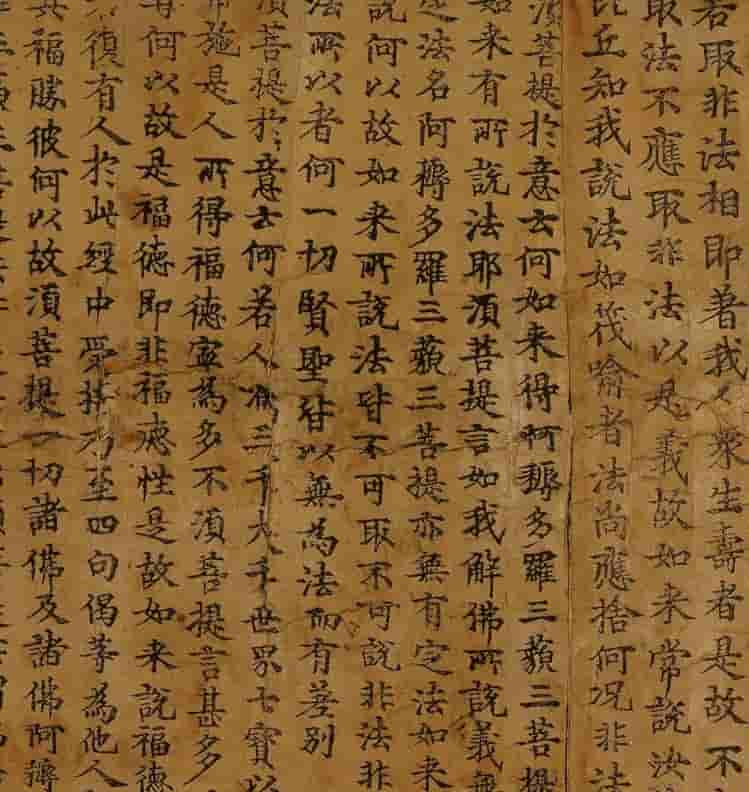 若取非法相即著我人衆生壽者是故不
取法不應取非法以是義故如来常說汝
比丘知我說法如筏喻者法尚應捨何况非法
湏菩提於意云何如来得阿耨多羅三藐三菩提
如来有所說法耶湏菩提言如我解佛所說義無
定法名阿耨多羅三藐三菩提亦無有定法如来
說何以故如来所說法皆不可取不可說非法非
法所以者何一切賢聖皆以無為法而有差别
湏菩提於意云何若人滿三千大千世界七寶以
布施是人所得福德寧為多不湏菩提言甚多
尊何以故是福德即非福德性是故如来說福德
復有人於此經中受持乃至四句偈等為他人
其福勝彼何以故湏菩提一切諸佛及諸佛阿耨